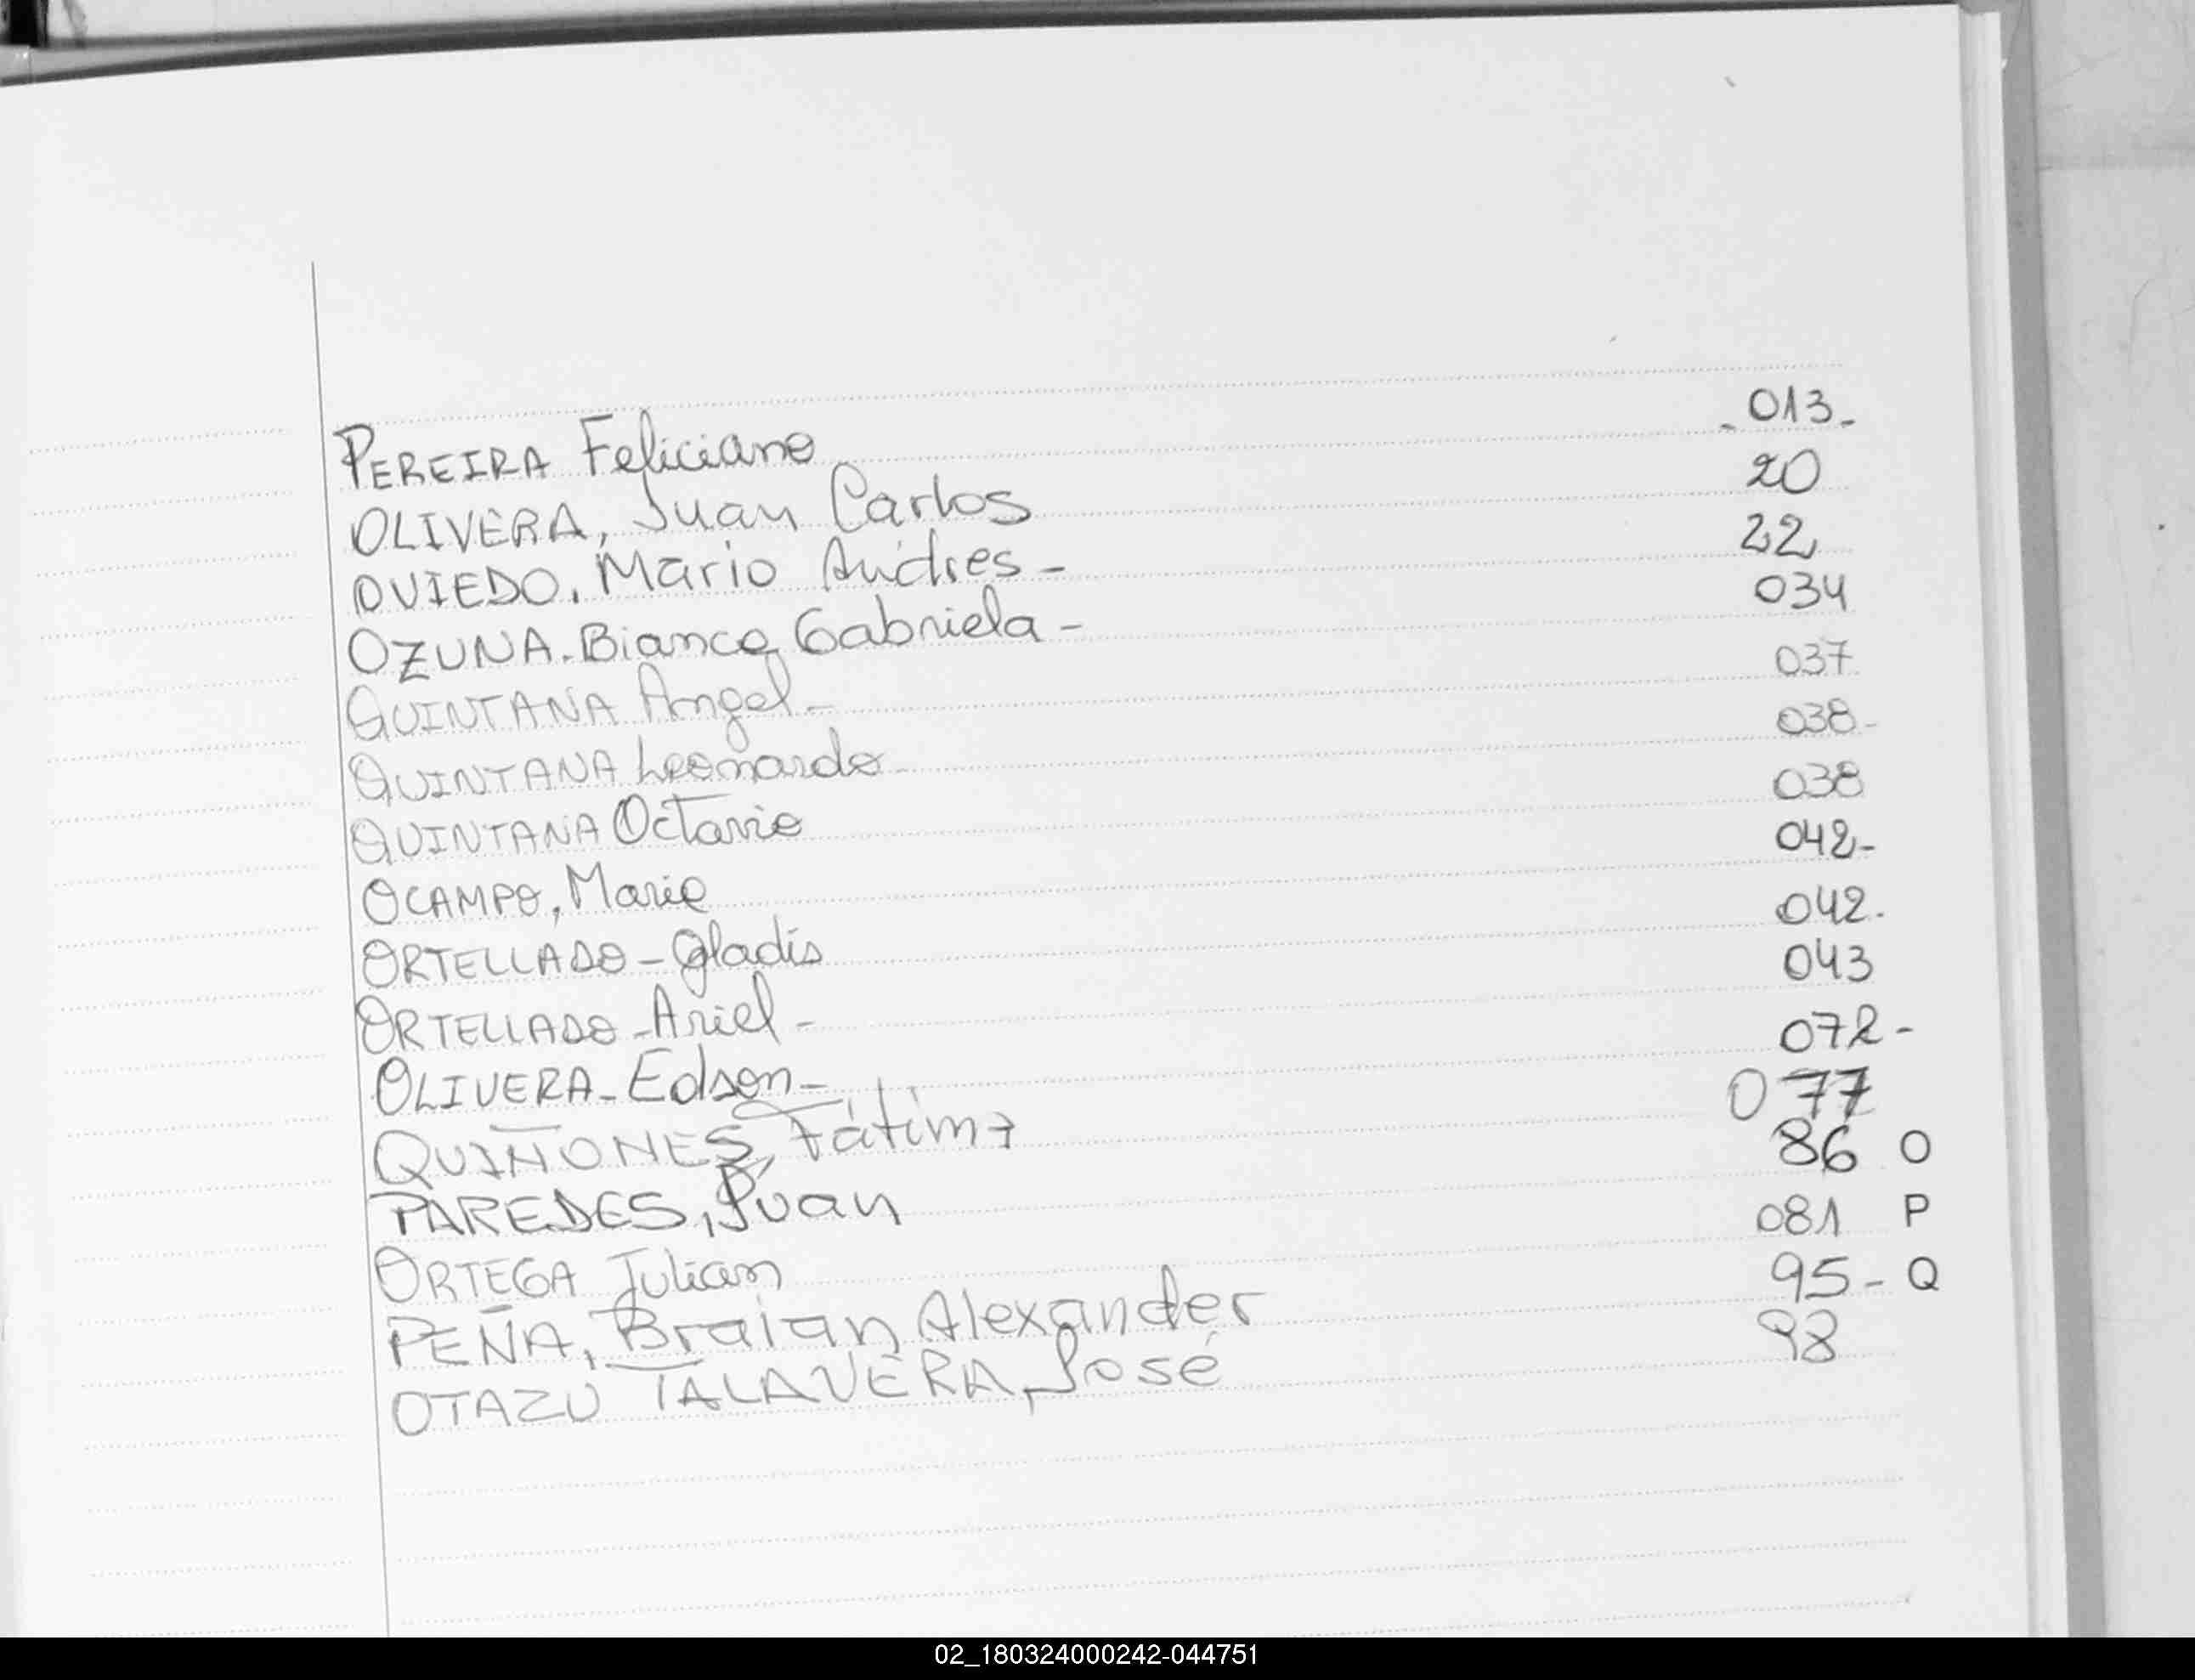 PEREIRA Feliciano - 013 -
OLIVERA, Juan Carlos 20
OVIEDO, Mario Andres - 22
OZUNA. Bianca Gabriela - 034
QUINTANA Angel - 037
QUINTANA Leonardo 038 -
QUINTANA Octavio 038
OCAMPO, Marie 042 -
ORTELLADO - Gladis 042.
ORTELLADO - Ariel - 043
OLIVERA - Edson - 072 -
QUIÑONES, Fátima 077
PAREDES, Juan 86 O
ORTEGA Julian 081 P
PEÑA, Braian Alexander 95 - Q
OTAZU TALAVERA, José 98
02_180324000242-044751